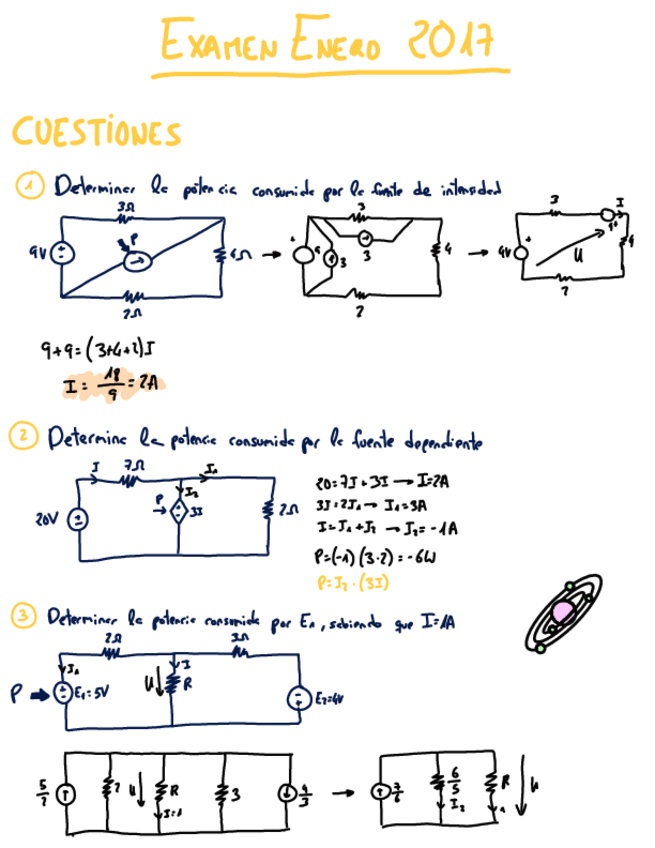 EXAMEN ENERO 2017
CUESTIONES
1 Determinar la potencia consumida por la fuente de intensidad
3Ω
9V
P
4Ω
2Ω
3
9
3
3
4
2
3
I
9
9V
U
4
2
9+9=(3+4+2)I
I = 18/9 = 2A
2 Determina la potencia consumida por la fuente dependiente
I 7Ω I₁
20V
P
I₂
3I
2Ω
20=7I+3I → I=2A
3I=2I₁ → I₁=3A
I=I₁+I₂ → I₂=-1A
P=(-1)(3·2)=-6W
P=I₂·(3I)
3 Determinar la potencia consumida por E₁, sabiendo que I=1A
2Ω 3Ω
I₁
I
P
E₁=5V
U
R
E₂=4V
5/2
2
U
R
I=1
3
4/3
7/6
6/5
I₂
R
1
U